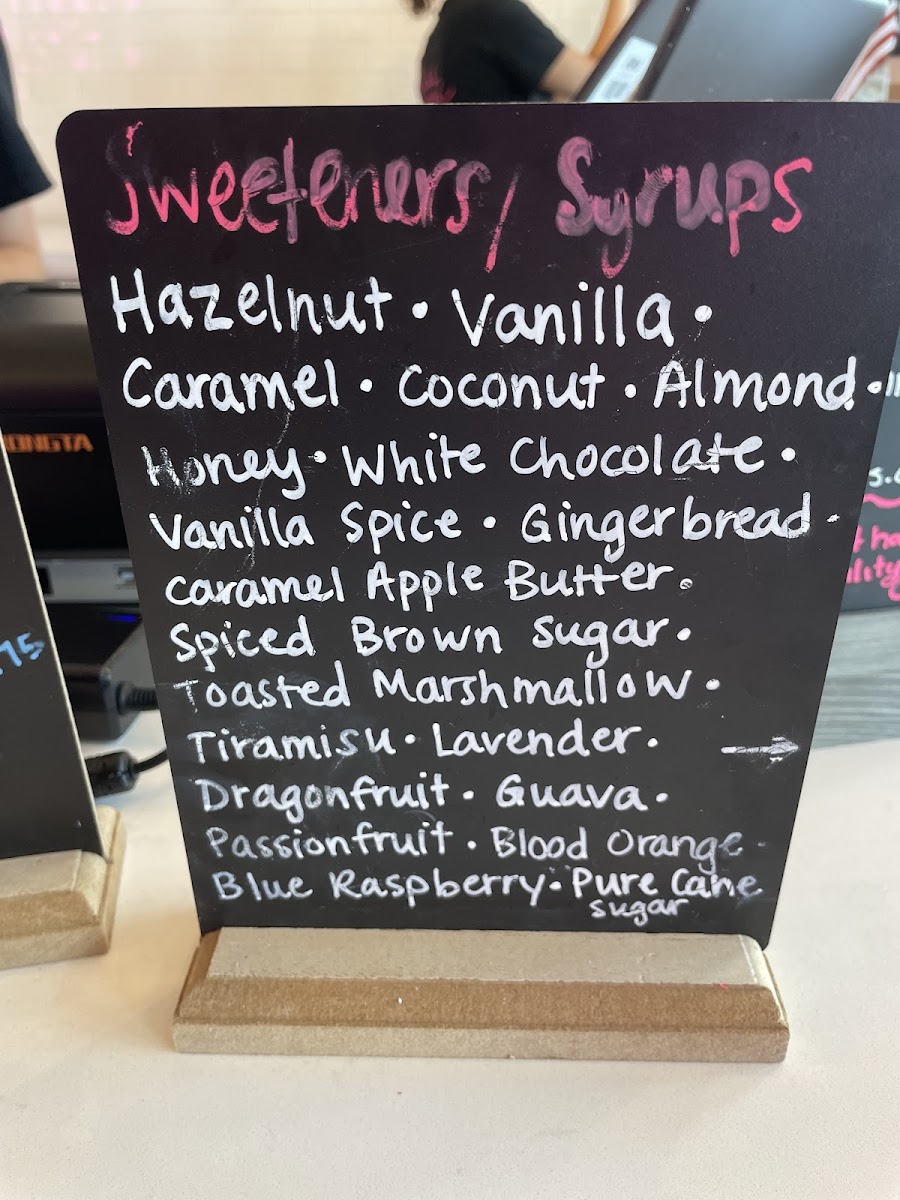 Sweeteners/ Syrups
Hazelnut • Vanilla •
Caramel • Coconut • Almond •
Honey • White Chocolate •
Vanilla Spice • Gingerbread •
Caramel Apple Butter •
Spiced Brown Sugar •
Toasted Marshmallow •
Tiramisu • Lavender • →
Dragonfruit • Guava •
Passionfruit • Blood Orange •
Blue Raspberry • Pure Cane
sugar
ONGTA
75